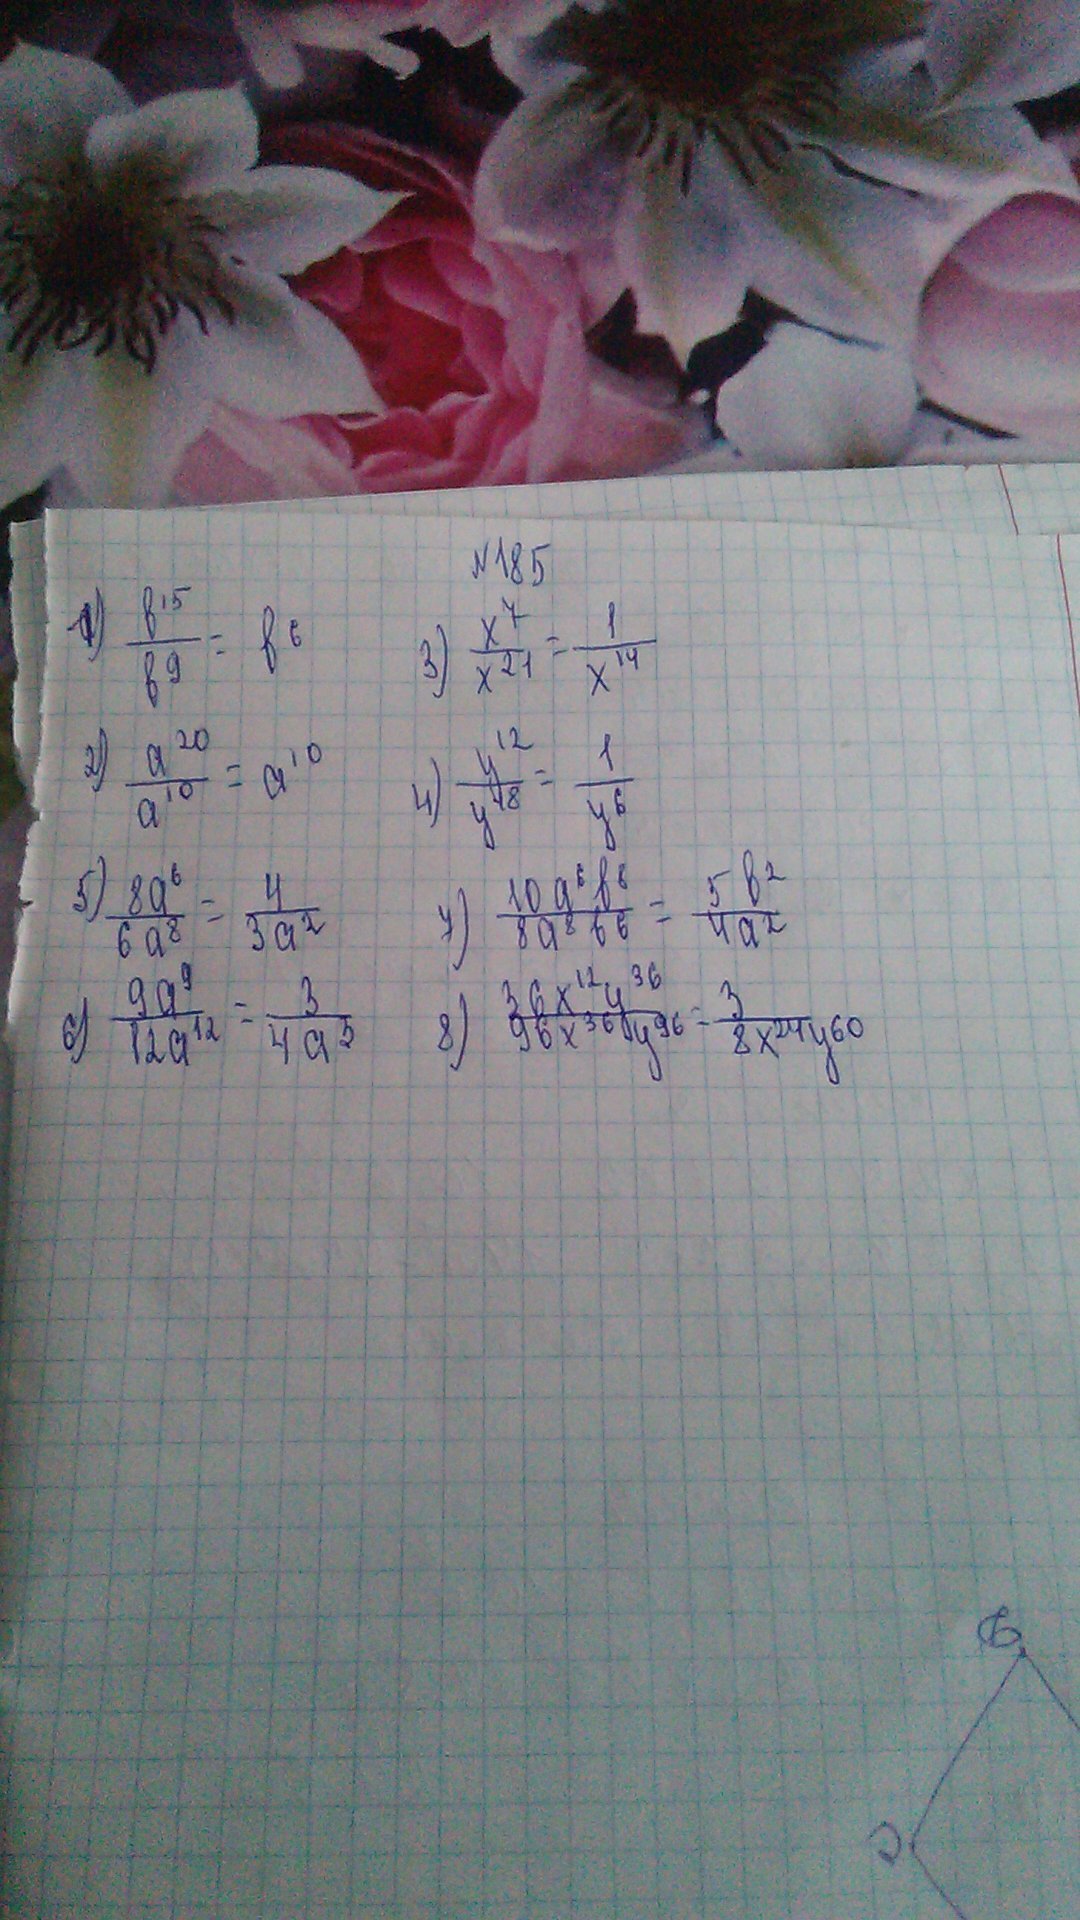 N185
1) b¹⁵/b⁹ = b⁶ 3) x⁷/x²¹ = 1/x¹⁴
2) a²⁰/a¹⁰ = a¹⁰ 4) y¹²/y¹⁸ = 1/y⁶
5) 8a⁶/6a⁸ = 4/3a² 7) 10a⁶b⁸/8a⁸b⁶ = 5b²/4a²
6) 9a⁹/12a¹² = 3/4a³ 8) 36x¹²y³⁶/96x³⁶y⁹⁶ = 3/8x²⁴y⁶⁰